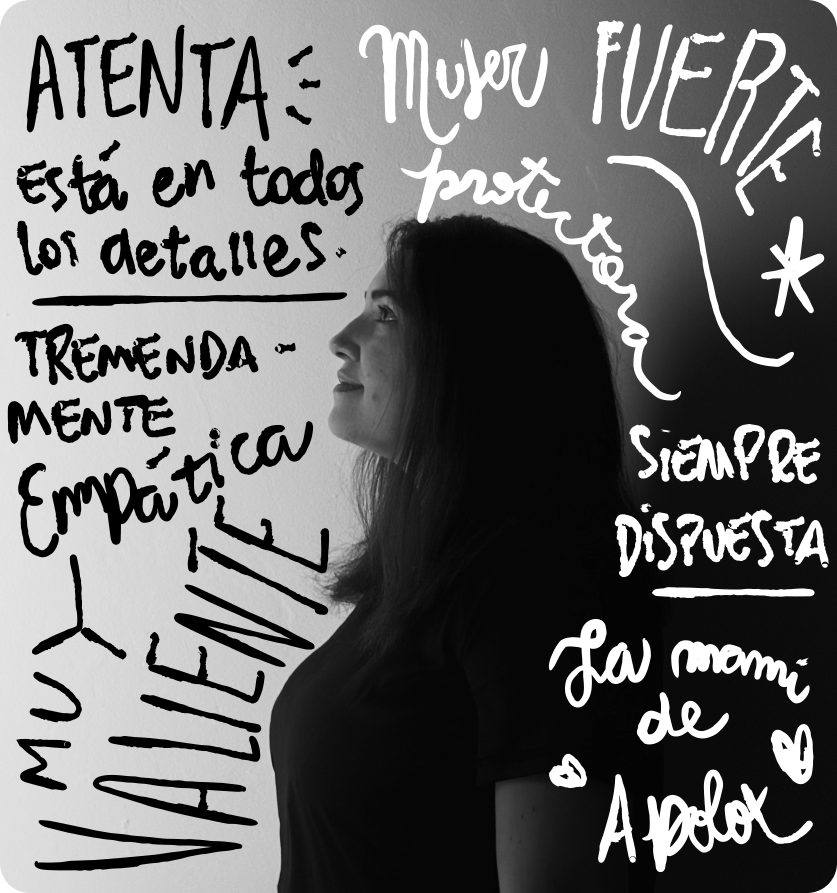 ATENTA
Está en todos
los detalles.
TREMENDA-
MENTE
Empática
MUY
VALIENTE
Mujer FUERTE
protectora
SIEMPRE
DISPUESTA
La mami
de
Apolox